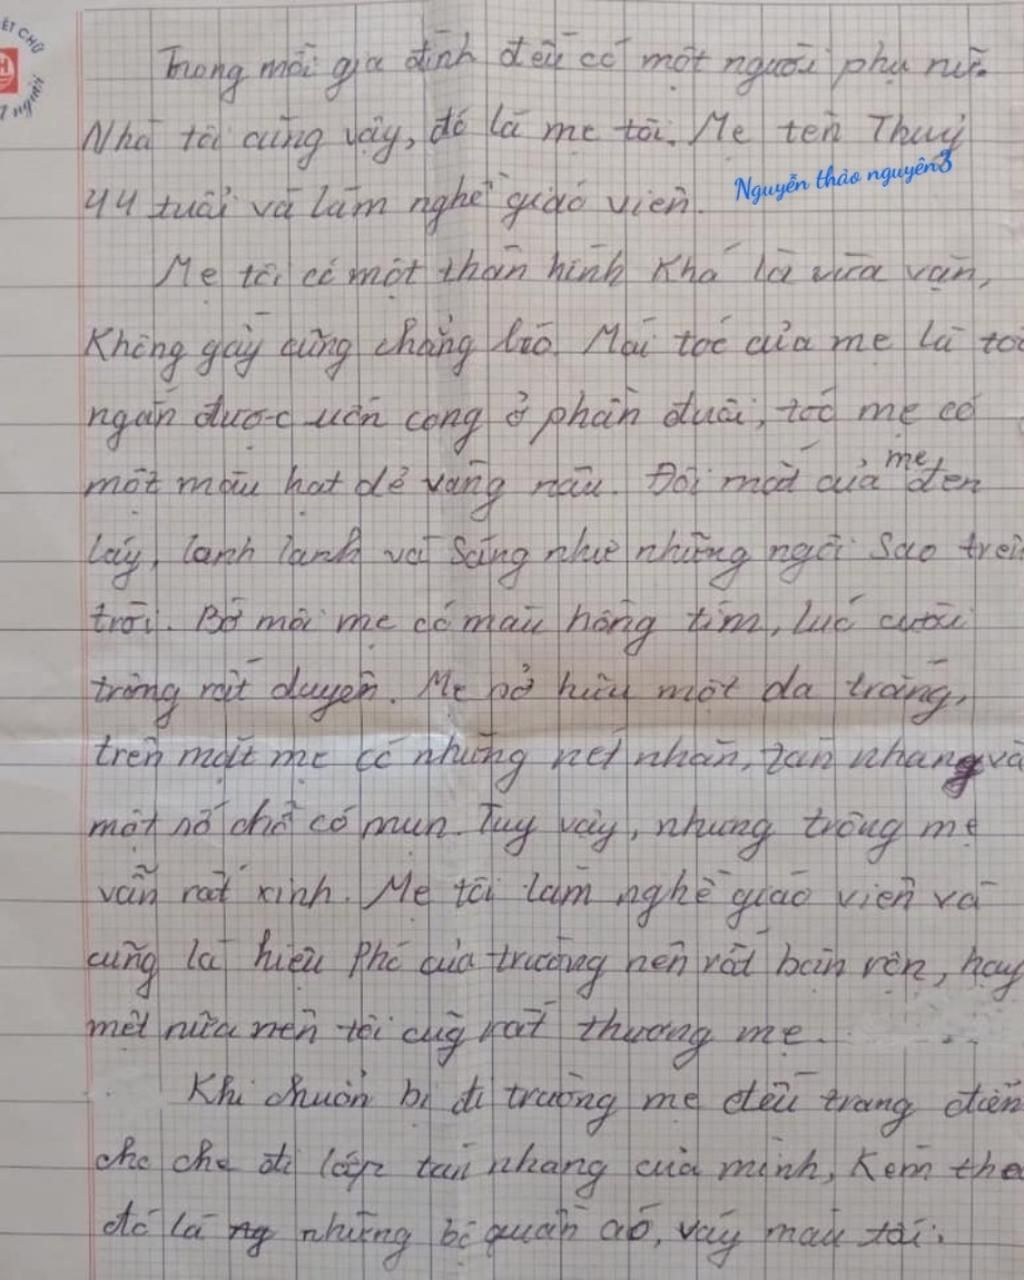 ẾT CHỮ
H
T người
Trong mỗi gia đình đều có một người phụ nữ.
Nhà tôi cũng vậy, đó là mẹ tôi. Mẹ tên Thuý
44 tuổi và làm nghề giáo viên.
Nguyễn thảo nguyên3
Mẹ tôi có một thân hình khá là vừa vặn,
không gầy cũng chẳng béo. Mái tóc của mẹ là tóc
ngắn được uốn cong ở phần đuôi, tóc mẹ có
một màu hạt dẻ vàng nâu. Đôi mắt của mẹ đen
láy, lanh lanh và sáng như những ngôi sao trên
trời. Bờ môi mẹ có màu hồng tím, lúc cười
trông rất duyên. Mẹ sở hữu một da trắng,
trên mặt mẹ có những nết nhăn, tàn nhang và
một số chỗ có mụn. Tuy vậy, nhưng trông mẹ
vẫn rất xinh. Mẹ tôi làm nghề giáo viên và
cũng là hiệu phó của trường nên rất bận rộn, hay
mệt nữa nên tôi cũg rất thương mẹ.
Khi chuẩn bị đi trường mẹ đều trang điểm
cho che đi lớp tàn nhang của mình, kèm theo
đó là ng những bộ quần áo, váy màu tối.